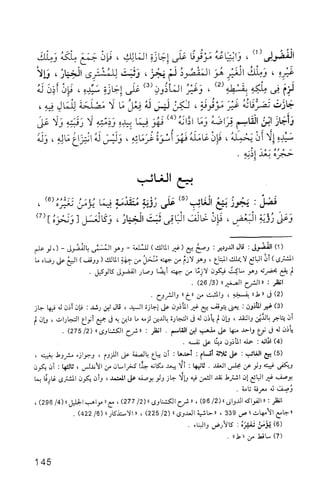 الفُضُولى (1) ، وَابْتِيَاعُهُ مَوْقُوفًا عَلَى إِجَازَةِ المَالِكِ ، فَإِنْ جَمَعَ مِلْكَهُ وَمِلْكَ
غَيْرِهِ ، وَمِلْكُ الْغَيْرِ هُوَ المَقْصُودُ لَمْ يَجُزْ ، وَثَبَتَ لِلْمُشْتَرِى الْخِيَارُ ، وَإلاَّ
لَزِمَ فِى مِلْكِهِ بِقِسْطِهِ (2) ، وَغَيْرُ المَأْذُونِ (3) عَلَى إِجَازَةِ سَيِّدِهِ ، فَإِنْ أَذِنَ لَهُ
جَازَتْ تَصَرُّفَاتُهُ غَيْرَ مَوْقُوفَةٍ ، لَكِنْ لَيْسَ لَهُ فِعْلُ مَا لاَ مَصْلَحَةَ لِلْمَالِ فِيهِ ،
وَأَجَازَ ابْنُ الْقَاسِمِ قِرَاضَهُ وَمَا ادَّانَهُ (4) فَهُوَ فِيمَا بِيَدِهِ وَذِمَّتِهِ لاَ رَقَبَتِهِ وَلاَ عَلَى
سَيِّدِهِ إِلاَّ أَنْ يَتَحَمَّلَهُ ، فَإِنْ عَامَلَهُ فَهُوَ أُسْوَةُ غُرَمَائِهِ ، وَلَيْسَ لَهُ انْتِزَاعُ مَالِهِ ، وَلَهُ
حَجْرُهُ بَعْدَ إِذْنِهِ .
بيع الغائب
فَصْلٌ : يَجُوزُ بَيْعُ الْغَائِبِ (5) عَلَى رُؤْيَةٍ مُتَقَدِّمَةٍ فِيمَا يُؤْمَنُ تَغَيُّرُهُ (6) ،
وَعَلَى رُؤْيَةِ الْبَعْضِ ، فَإِنْ خَالَفَ الْبَاقِى ثَبَتَ الْخِيَارُ ، وَكَالْعَسَلِ [ وَنَحْوِهِ ] (7)
(1) الفضول : قال الدردير : وصح بيع (غير المالك) للسلعة - وهو المسمى بالفضولى - ، لو علم
المشترى أن البائع لا يملك المبتاع ، وهو لازم من جهته منحل من جهة المالك ( ووقف ) البيع على رضاه ما
لم يقع بحضرته وهو ساكت فيكون لازمًا من جهته أيضًا وصار الفضولى كالوكيل .
انظر : « الشرح الصغير » (3/ 26) .
(2) فى « ط » بقسمته ، والمثبت من « ع » والشروح .
(3) غير المأذون : يعنى يتوقف بيع غير المأذون على إجازة السيد ، قال ابن رشد : فإن أذن له فيها جاز
أن يتاجر بالدَّيْن والنقد ، وإن لم يأذن له فى التجارة بالدين لزمه ما داين به فى جميع أنواع التجارات ، وإن لم
يأذن له فى نوع واحد منها على مذهب ابن القاسم . انظر : « شرح الكشناوى » (2/ 275) .
(4) ادَّانَه : حله المأذون دينًا على نفسه .
(5) بيع الغائب : على ثلاثة أقسام : أحدها : أن يباع بالصفة على اللزوم ، وجوازه مشروط بغيبته ،
ويكفى غيبته ولو عن مجلس العقد . ثانيها : ألا يبعد مكانه جدًّا كخراسان من الأندلس . ثالثها : أن يكون
بوصف غير البائع إن اشترط نقد الثمن فيه وإلَّا جاز ولو بوصفه على المعتمد ، وأن يكون المشترى عارفًا بما
وُصِف له معرفة تامة .
انظر : « الفواكه الدوانى » (2/ 96) ، « شرح الكشناوى » (2/ 277) ، مع « مواهب الجليل » (4/ 296) ،
« جامع الأمهات » ص 339 ، « حاشية العدوى » (2/ 225) ، « الاستذكار » (6/ 422) .
(6) يُؤْمَنُ تَغَيُّرُه : كالأرض والبناء .
(7) ساقط من « ط » .
145